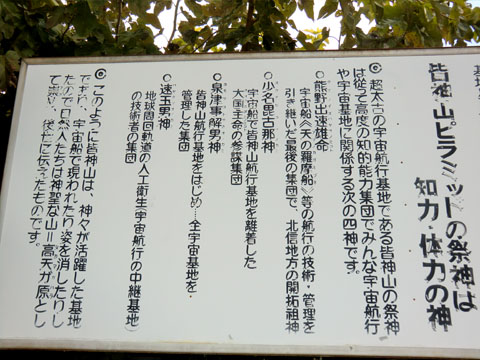 皆神山ピラミットの祭神は
知力・体力の神
◎超太古の宇宙航行基地である皆神山の祭神
は従って高度の知的能力集団でみんな宇宙航行
や宇宙基地に関係する次の四神です。
○熊野出速雄命
宇宙船《天の羅摩船》等の航行の技術・管理を
引き継いだ最後の集団で、北信地方の開拓祖神
○少名毘古那神
宇宙船で皆神山航行基地を離着した
大国主命の参謀集団
○泉津事解男神
皆神山航行基地をはじめ…全宇宙基地を・
管理した集団
○速玉男神
地球周回軌道の人工衛星(宇宙航行の中継基地)
の技術者の集団
◎このように皆神山は、神々が活躍した基地
であり、宇宙船で現われたり姿を消したりし
たので自然人たちは神聖な山=高天が原とし
て崇め、後世に伝えたものです。